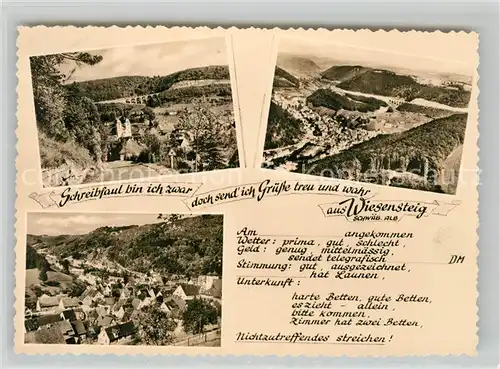 Schreibfaul bin ich zwar
doch send ich Grüße treu und wahr
aus Wiesensteig
SCHWÄB. ALB
Am angekommen
Wetter: prima, gut, schlecht,
Geld: genug, mittelmässig,
sendet telegrafisch DM
Stimmung: gut, ausgezeichnet,
hat Launen,
Unterkunft:
harte Betten, gute Betten,
es zieht - allein,
bitte kommen,
Zimmer hat zwei Betten,
Nichtzutreffendes streichen!